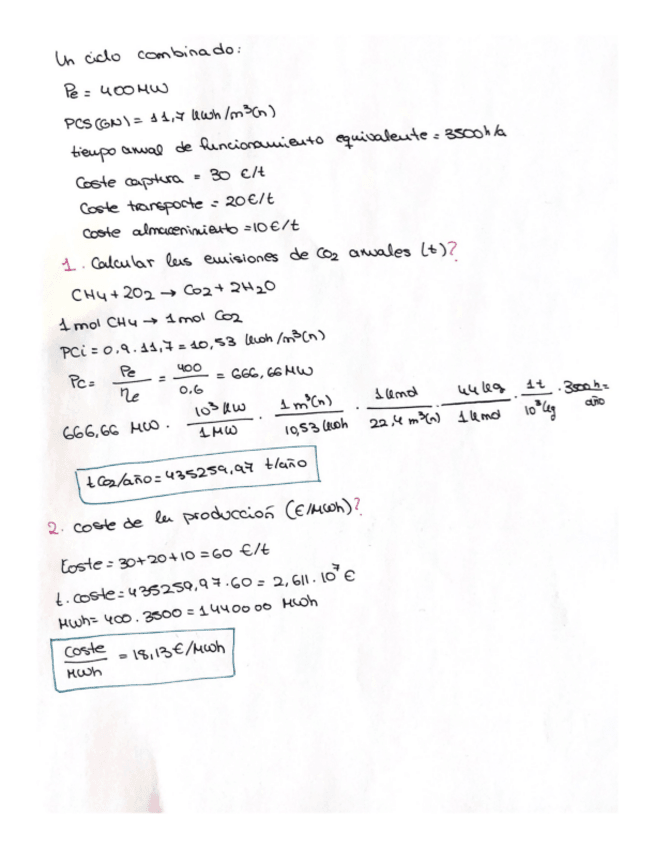 Un ciclo combinado:
Pe = 400 MW
PCS(GN) = 11,7 kWh/m³(n)
tiempo anual de funcionamiento equivalente = 3500 h/a
Coste captura = 30 €/t
Coste transporte = 20 €/t
Coste almacenimiento = 10 €/t
1. Calcular las emisiones de CO2 anuales (t)?
CH4 + 2O2 → CO2 + 2H2O
1 mol CH4 → 1 mol CO2
PCi = 0.9 . 11,7 = 10,53 kWoh/m³(n)
Pc = Pe/ηe = 400/0.6 = 666,66 MW
666,66 MW . 10³ kW/1 MW . 1 m³(n)/10,53 kWoh . 1 kmol/22,4 m³(n) . 44 kg/1 kmol . 1t/10³ kg . 3500 h/año =
t CO2/año = 435259,97 t/año
2. coste de la producción (€/MWh)?
Coste = 30+20+10 = 60 €/t
t. coste = 435259,97 . 60 = 2,611 . 10⁷ €
MWh = 400 . 3500 = 1440000 MWh
Coste/MWh = 18,13 €/MWh